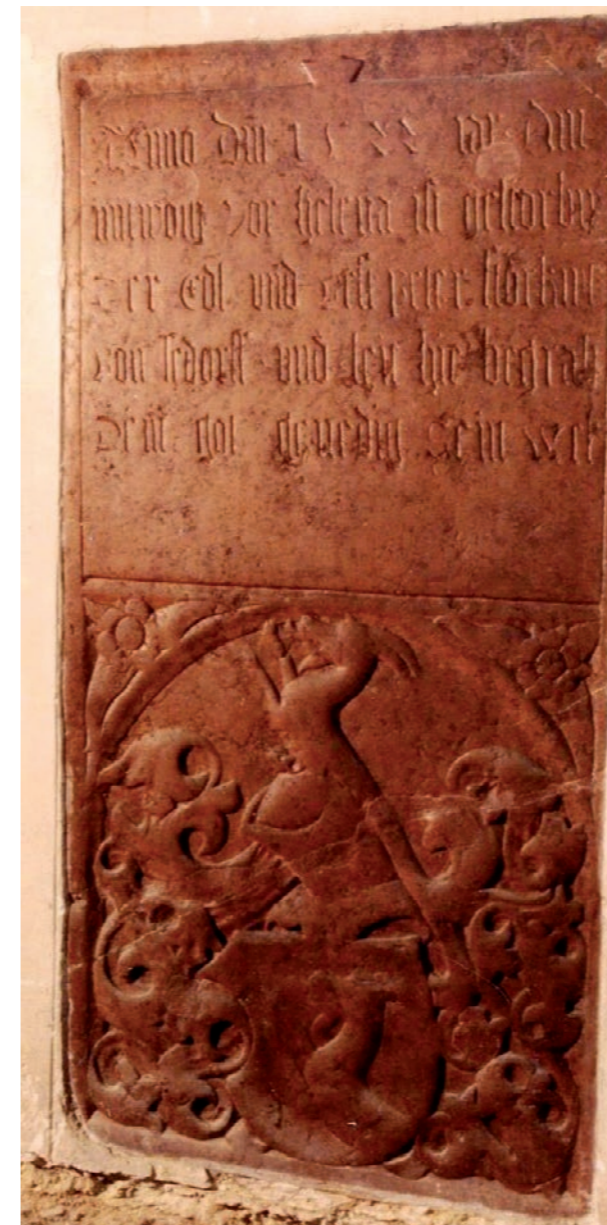 Anno dm̄ 15 iar am
mitwoch vor helena ist gestorbn
Der Edl und vest peter
von und leit hie begrab
Dem got genedig sein wel